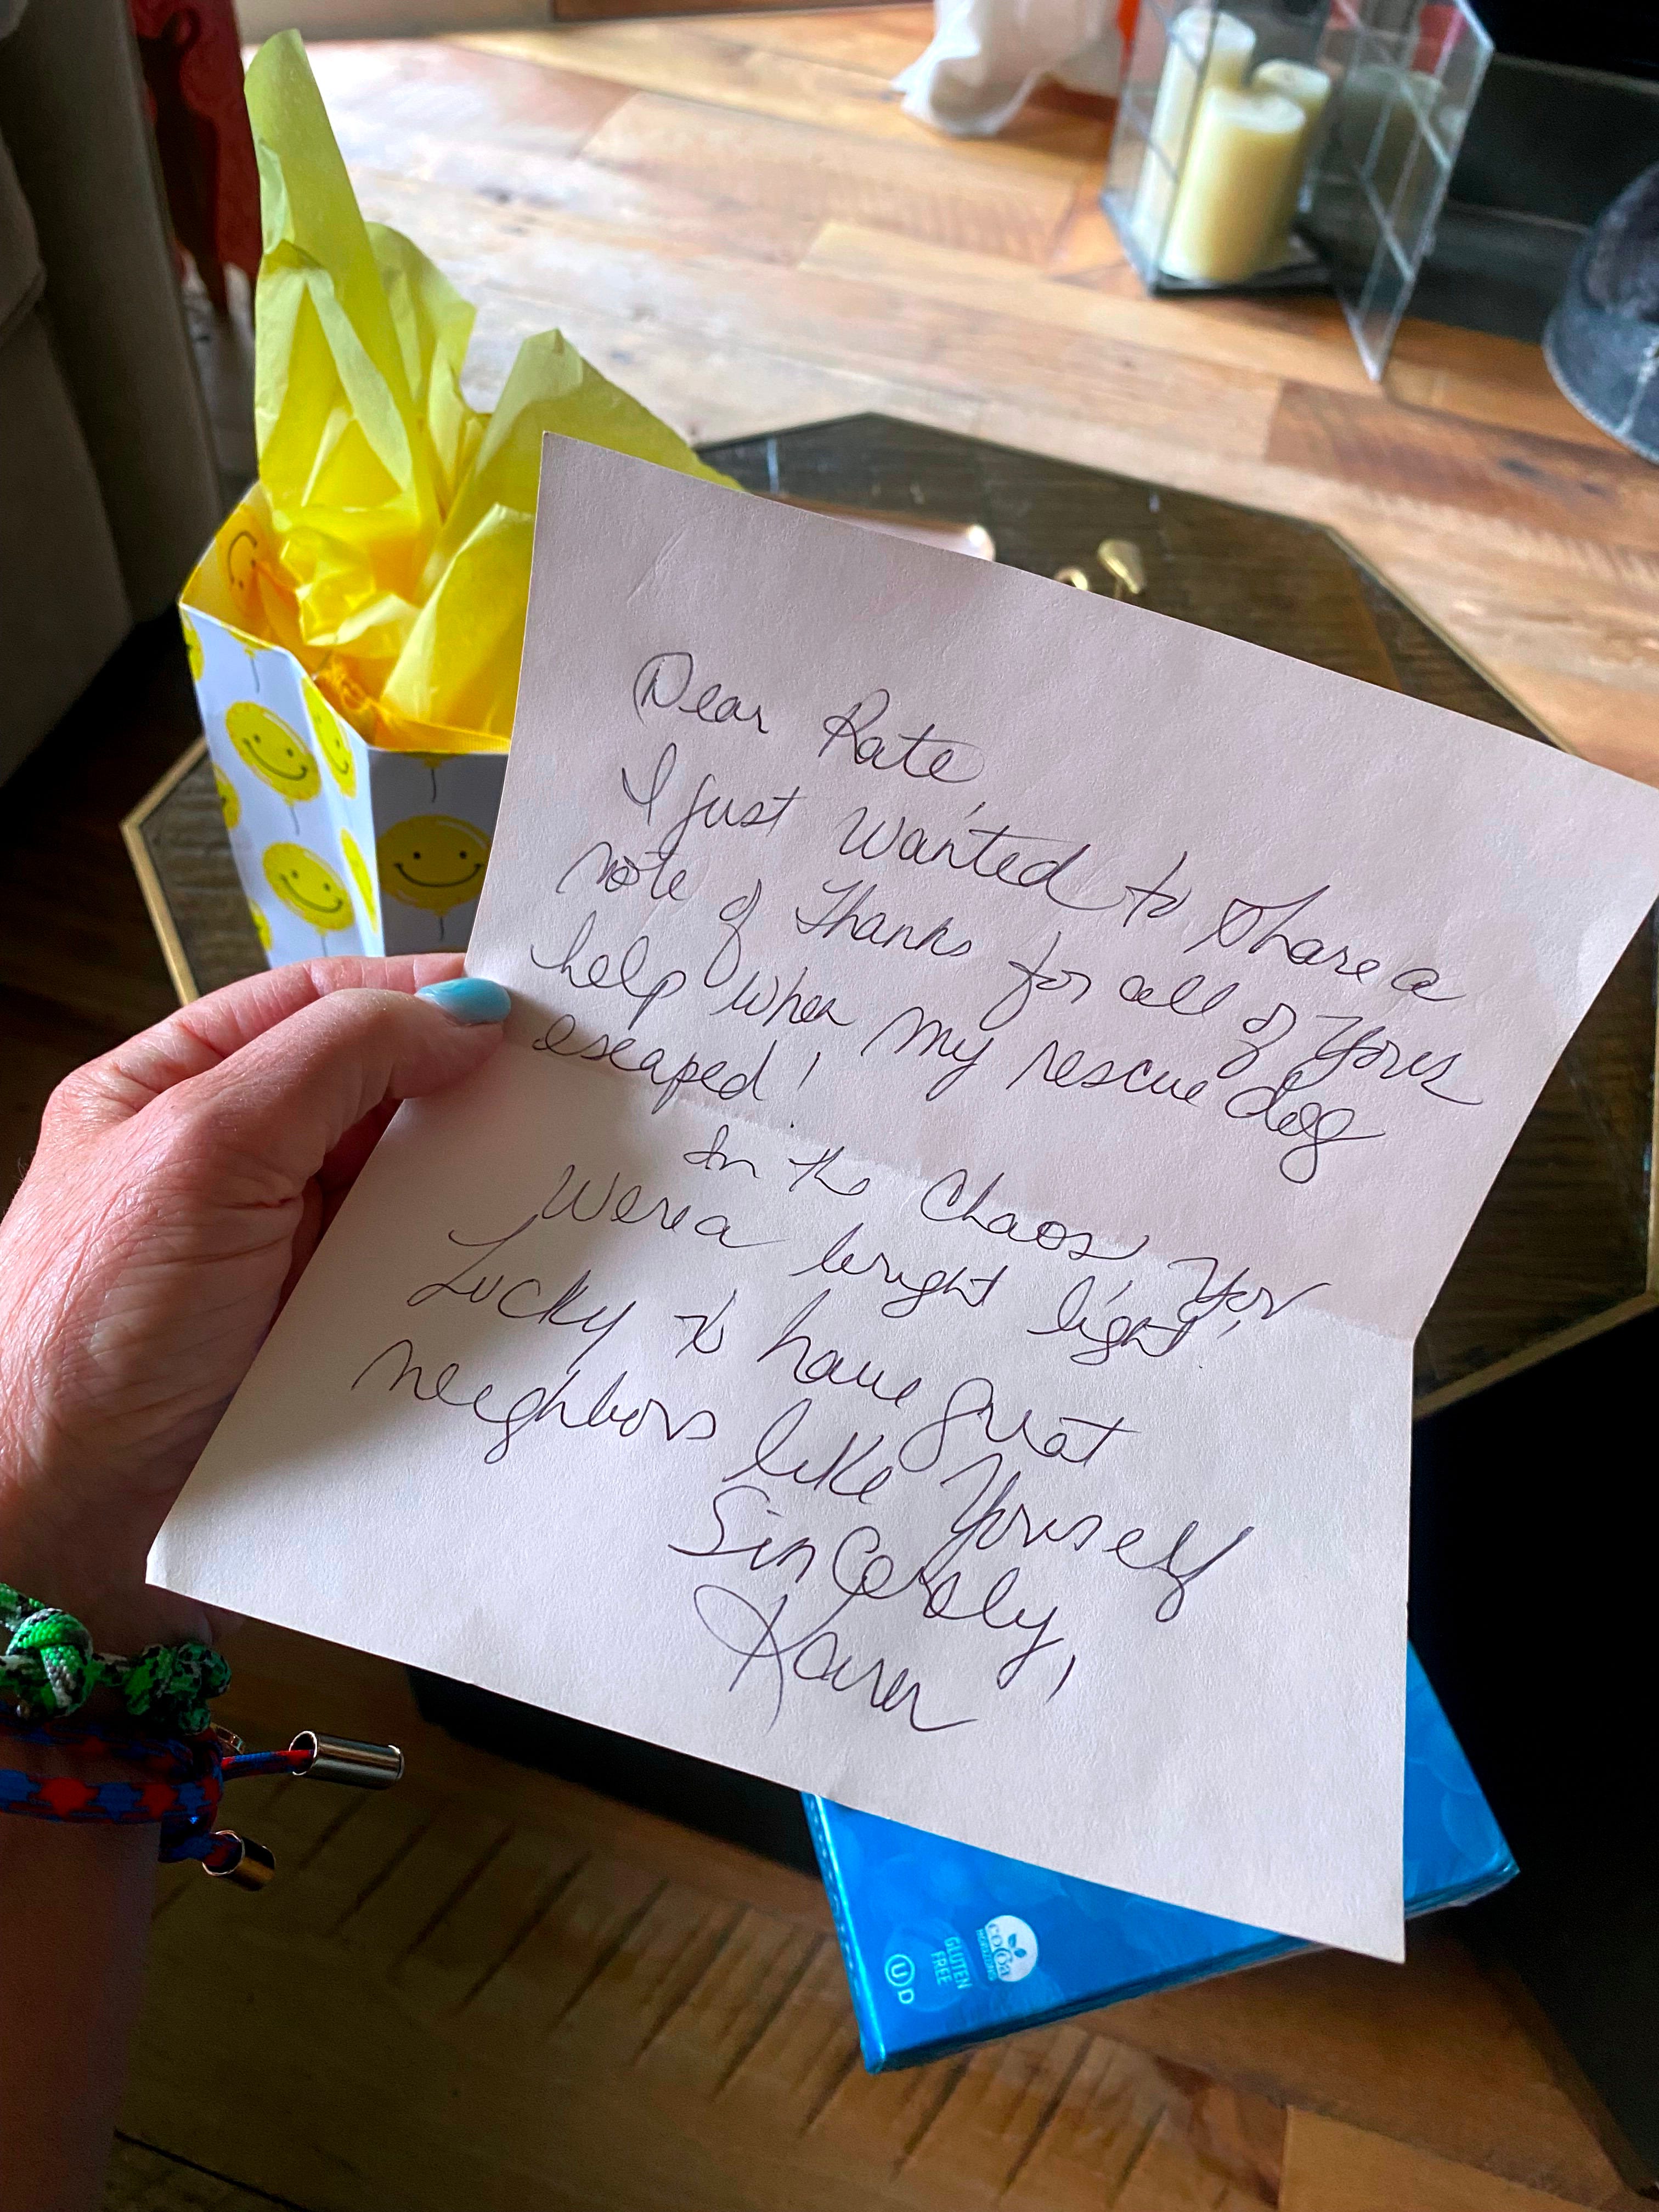 Dear Kate,
I just wanted to share a
note of thanks for all of Yours
help when my rescue dog
escaped!
In the Chaos You
Were a bright light!
Lucky to have great
neighbors like Yourself
Sincerely,
Karen
cocoa
HORIZONS
GLUTEN
FREE
U D